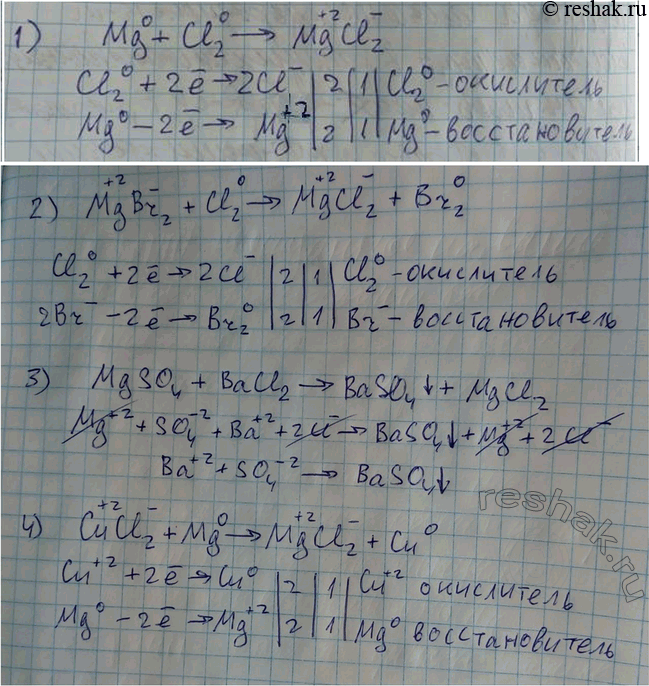 © reshak.ru
1) Mg⁰ + Cl₂⁰ → Mg⁺²Cl₂⁻
Cl₂⁰ + 2ē → 2Cl⁻ | 2 | 1 | Cl₂⁰ - окислитель
Mg⁰ - 2ē → Mg⁺² | 2 | 1 | Mg⁰ - восстановитель
2) Mg⁺²Br₂⁻ + Cl₂⁰ → Mg⁺²Cl₂⁻ + Br₂⁰
Cl₂⁰ + 2ē → 2Cl⁻ | 2 | 1 | Cl₂⁰ - окислитель
2Br⁻ - 2ē → Br₂⁰ | 2 | 1 | Br⁻ - восстановитель
3) MgSO₄ + BaCl₂ → BaSO₄↓ + MgCl₂
Mg⁺² + SO₄⁻² + Ba⁺² + 2Cl⁻ → BaSO₄↓ + Mg⁺² + 2Cl⁻
Ba⁺² + SO₄⁻² → BaSO₄↓
reshak.ru
4) Cu⁺²Cl₂⁻ + Mg⁰ → Mg⁺²Cl₂⁻ + Cu⁰
Cu⁺² + 2ē → Cu⁰ | 2 | 1 | Cu⁺² окислитель
Mg⁰ - 2ē → Mg⁺² | 2 | 1 | Mg⁰ восстановитель